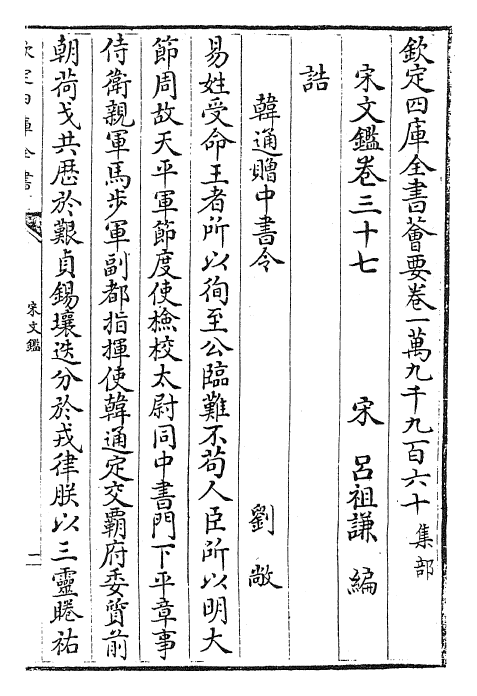 欽定四庫全書薈要卷一萬九千九百六十 集部
宋文鑑卷三十七 宋 呂祖謙 編
誥
韓通贈中書令 劉敞
易姓受命王者所以徇至公臨難不苟人臣所以明大
節周故天平軍節度使檢校太尉同中書門下平章事
侍衛親軍馬步軍副都指揮使韓通定交霸府委質前
朝荷戈共歴於艱貞錫壤迭分於戎律朕以三靈睠祐
欽定四庫全書
宋文鑑
二